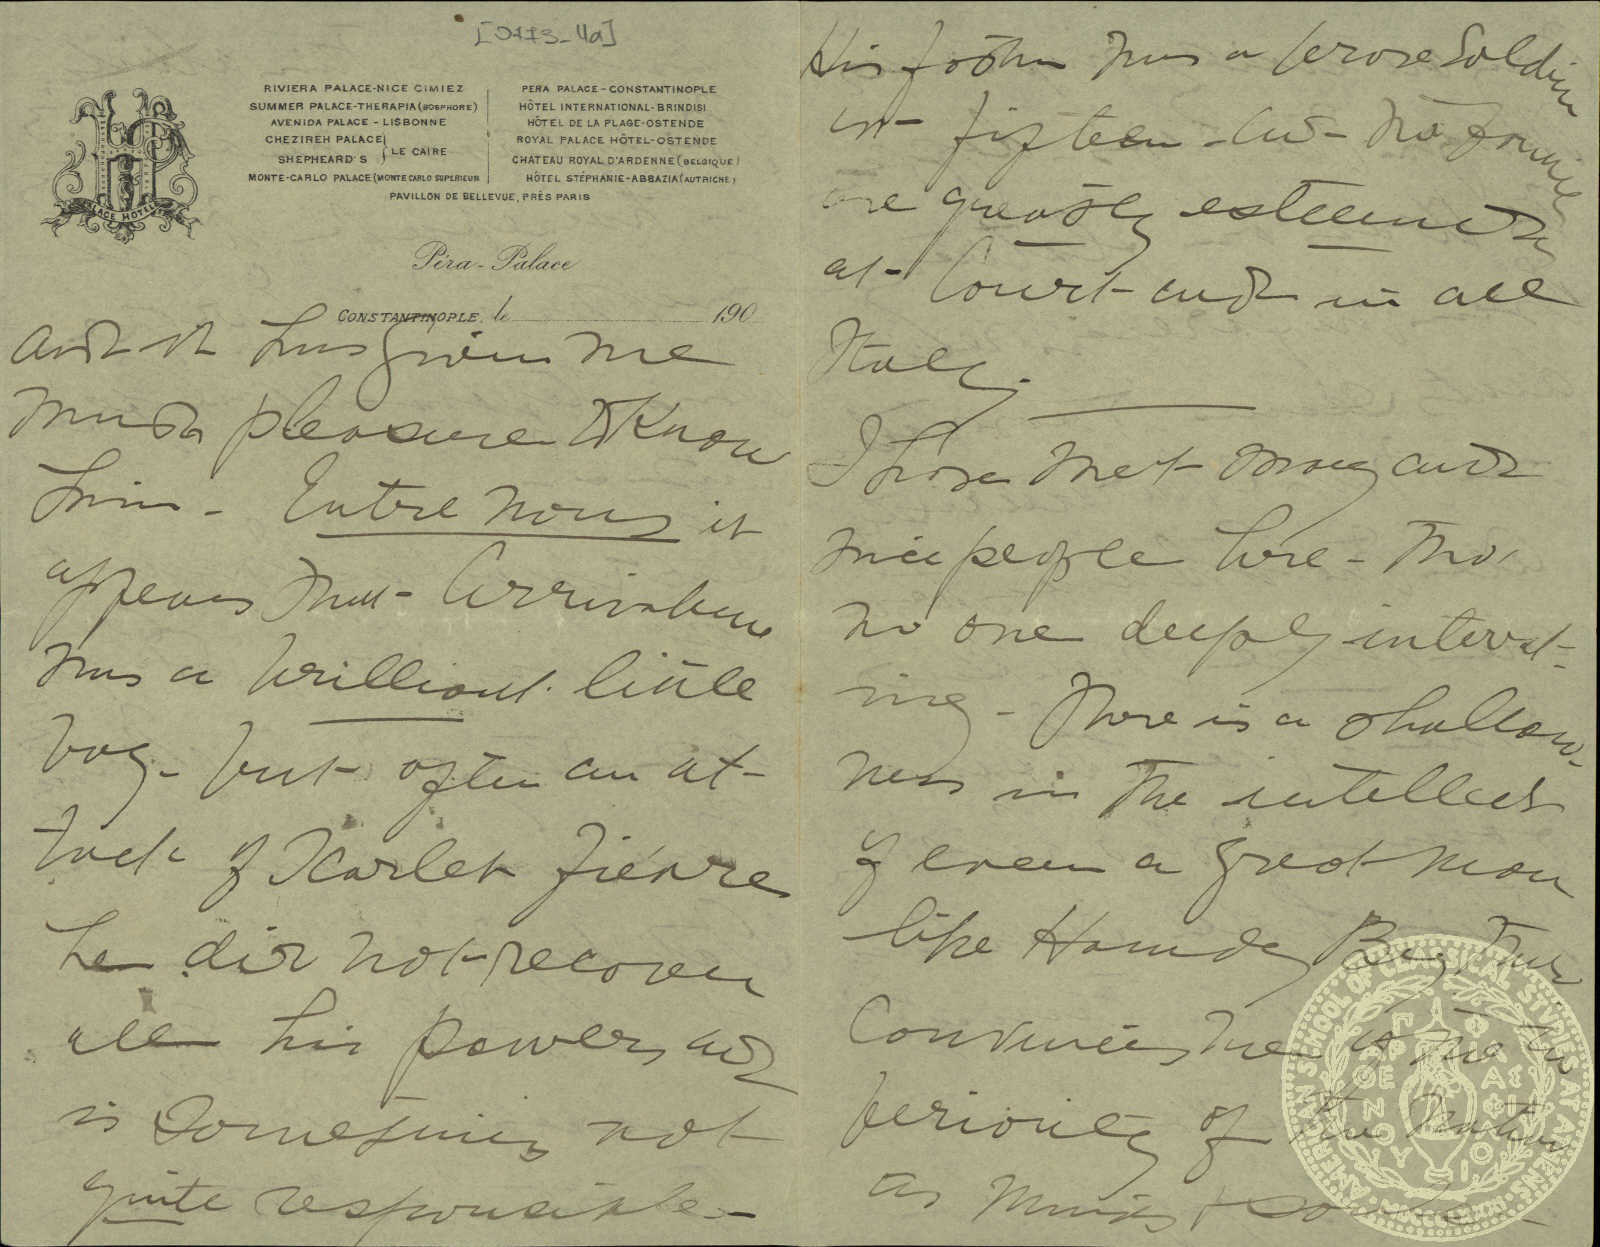 RIVIERA PALACE-NICE CIMIEZ
SUMMER PALACE-THERAPIA (BOSPHORE)
AVENIDA PALACE - LISBONNE
CHEZIREH PALACE
SHEPHEARD'S
LE CAIRE
MONTE-CARLO PALACE (MONTE CARLO SUPERIEUR
PERA PALACE - CONSTANTINOPLE
HÔTEL INTERNATIONAL-BRINDISI
HÔTEL DE LA PLAGE-OSTENDE
ROYAL PALACE HÔTEL-OSTENDE
CHATEAU ROYAL D'ARDENNE (BELGIQUE)
HÔTEL STÉPHANIE-ABBAZIA (AUTRICHE)
PAVILLON DE BELLEVUE, PRÈS PARIS
PALACE HOTELS
Péra-Palace
CONSTANTINOPLE, le 190
and it has given me
much pleasure to know
him - Entre nous it
appears that Arrivabene
was a brilliant little
boy - but after an at-
tack of Scarlet fièvre
he did not recover
all his powers and
is sometimes not
quite responsible -
His father was a brave Soldier
in fifteen - and the family
are greatly esteemed
at Court and in all
Italy.
I have met many and
nice people here - tho'
no one deeply interest-
ing - There is a shallow-
ness in the intellect
of even a great man
like Hamdy Bey that
Convinces me of the in
feriority of the nation
as minds &
AMERICAN SCHOOL OF CLASSICAL STUDIES AT ATHENS